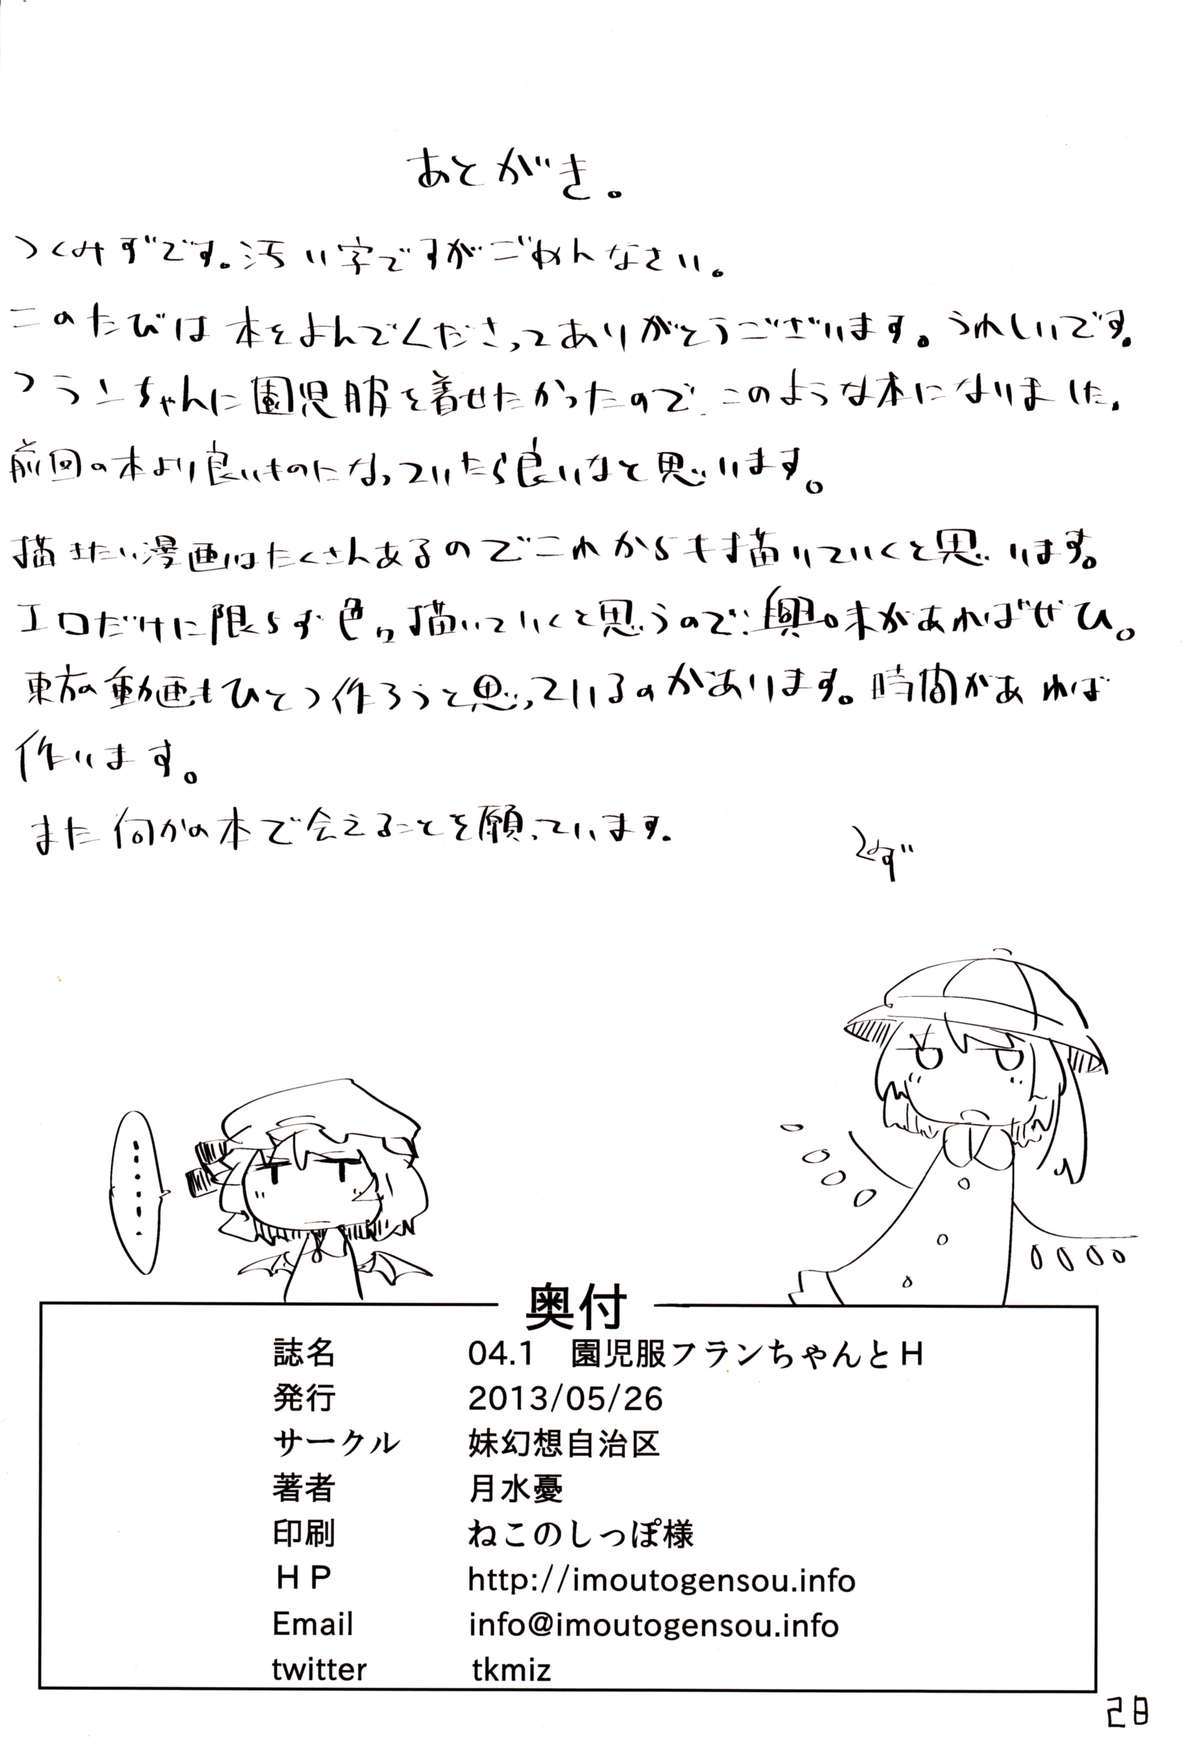 あとがき。
つくみずです。汚い字ですがごめんなさい。
このたびは本をよんでくださってありがとうございます。うれしいです。
フランちゃんに園児服を着せたかったので、このような本になりました。
前回の本より良いものになっていたら良いなと思います。
描きたい漫画はたくさんあるのでこれからも描いていくと思います。
エロだけに限らず色々描いていくと思うので、興味があればぜひ。
東方の動画もひとつ作ろうと思っているのがあります。時間があれば
作ります。
また何かの本で会えることを願っています。
みず
......
奥付
誌名 04.1 園児服フランちゃんとH
発行 2013/05/26
サークル 妹幻想自治区
著者 月水憂
印刷 ねこのしっぽ様
HP http://imoutogensou.info
Email info@imoutogensou.info
twitter tkmiz
28